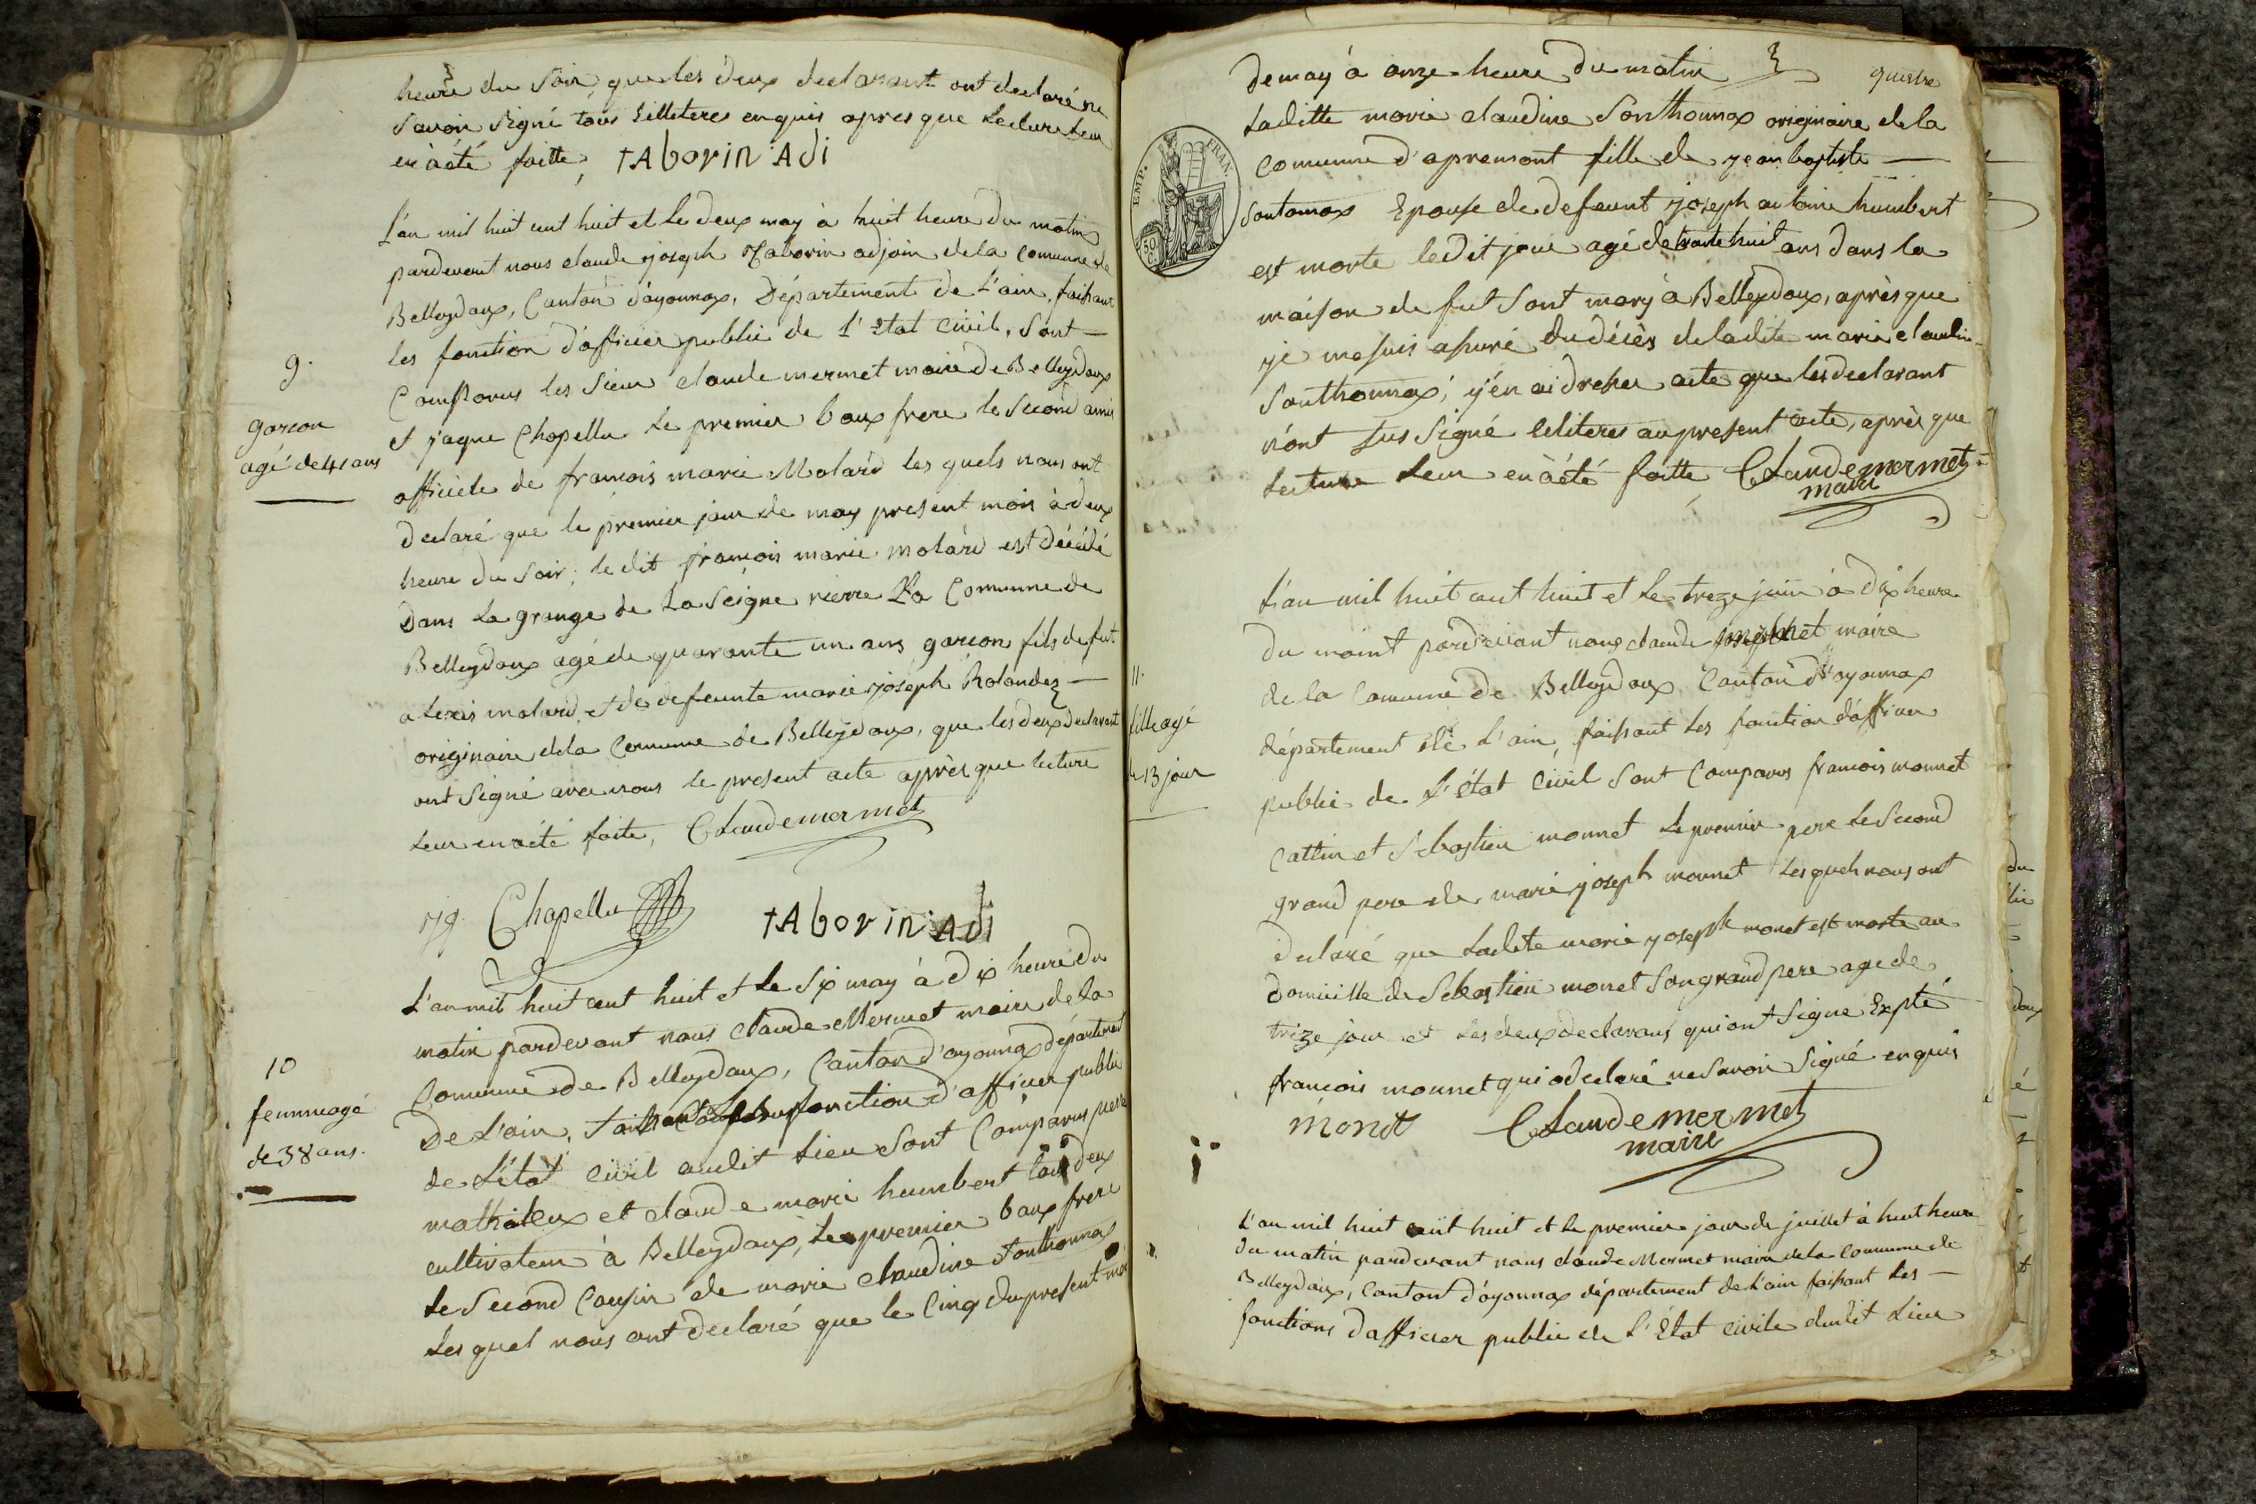 heure du soir, que les deux declarant ont declaré ne
savoir signé tous Lilliteres enquis apres que Lecture Leur
en àété faitte, tAborin Adi
L'an mil huit cent huit et le deux may à huit heure du matin
pardevant nous claude joseph Taborin adjoin de la Comunne de
Belleydoux, Canton d'oyonnax, Département de L'ain, faisant
les fonction d'afficier public de l'état civil, Sont
9.
garcon
agé de 41 ans
Comparus les sieur claude mermet maire de Belleydoux
et jaque Chapellu Le premier baux frere le second amis
afficiele de francois marie Molard les quels nous ont
declaré que le premier jour de may present mois à deux
heure du soir; le dit francois marie molard est décédé
Dans La grange de La Seigne rierre La Comunne de
Belleydoux agé de quarante un ans garcon fils de fut
alexis molard, et de defeunte marie joséph Rolandez
originaire dela Comunne de Belleydoux, que les deux declarant
ont Signé avec nous le present acte après que lecture
Leur en àété faite, Claude mermet
jq. Chapellu tAborin Adi
L'an mil huit cent huit et Le Six may à dix heure du
matin pardevant nous claude Mermet maire de la
10
femme agé
de 38 ans.
Comunne de Belleydoux, Canton d'oyonnax département
De L'ain, fonction d'afficier public
de L'état civil audit Lieu Sont Comparus
et claude marie humbert tous deux
cultivateur à Belleydoux, Le premier baux frere
Le Second Cousin de marie claudine Sonthonnax
Les quel nous ont declaré que le Cinq du present mois
de may à onze heure du matin
quatre
EMP. FRAN.
50 C.
Laditte marie claudine Sonthonnax originaire de la
comunne d'apremont fille de jean baptiste
Sontonax Epouse de defeunt joseph antoine humbert
est morte ledit jour agé de trante huit ans dans la
maison de fut Sont mary à Belleydoux, après que
je me suis asuré du décès de ladite marie claudine
Sonthonnax; j'en ai dresser acte que les declarant
n'ont sus Signé lilliteres au present acte, après que
Lecture Leur en àété faitte, Claude mermet
maire
L'an mil huit cent huit et Le treze juin à dix heure
du pardevant nous claude mermet maire
11.
fille agé
de 13 jour
de la Comunne de Belleydoux Canton d'oyonnax
département de L'ain, faissant Les fonction d'afficier
public de L'état civil Sont Comparus francois monnet
Cattin et Sebastien monnet Le premier pere Le Second
grand pere de marie joseph monnet Lesquels nous ont
declaré que Ladite marie joseph monet est morte au
domicille de Sebastien monet Son grand pere age de
trize jour et Les deux declarans qui ont Signe Expté
francois monnet qui a declaré ne Savoir Signé enquis
monet Claude mermet
maire
L'an mil huit cent huit et le premier jour de juillet à huit heure
du matin pardevant nous claude Mermet maire de la Comunne de
Belleydoux, Canton d'oyonnax département de L'ain faissant Les
fonctions d'afficier public de L'État civile dudit Lieu